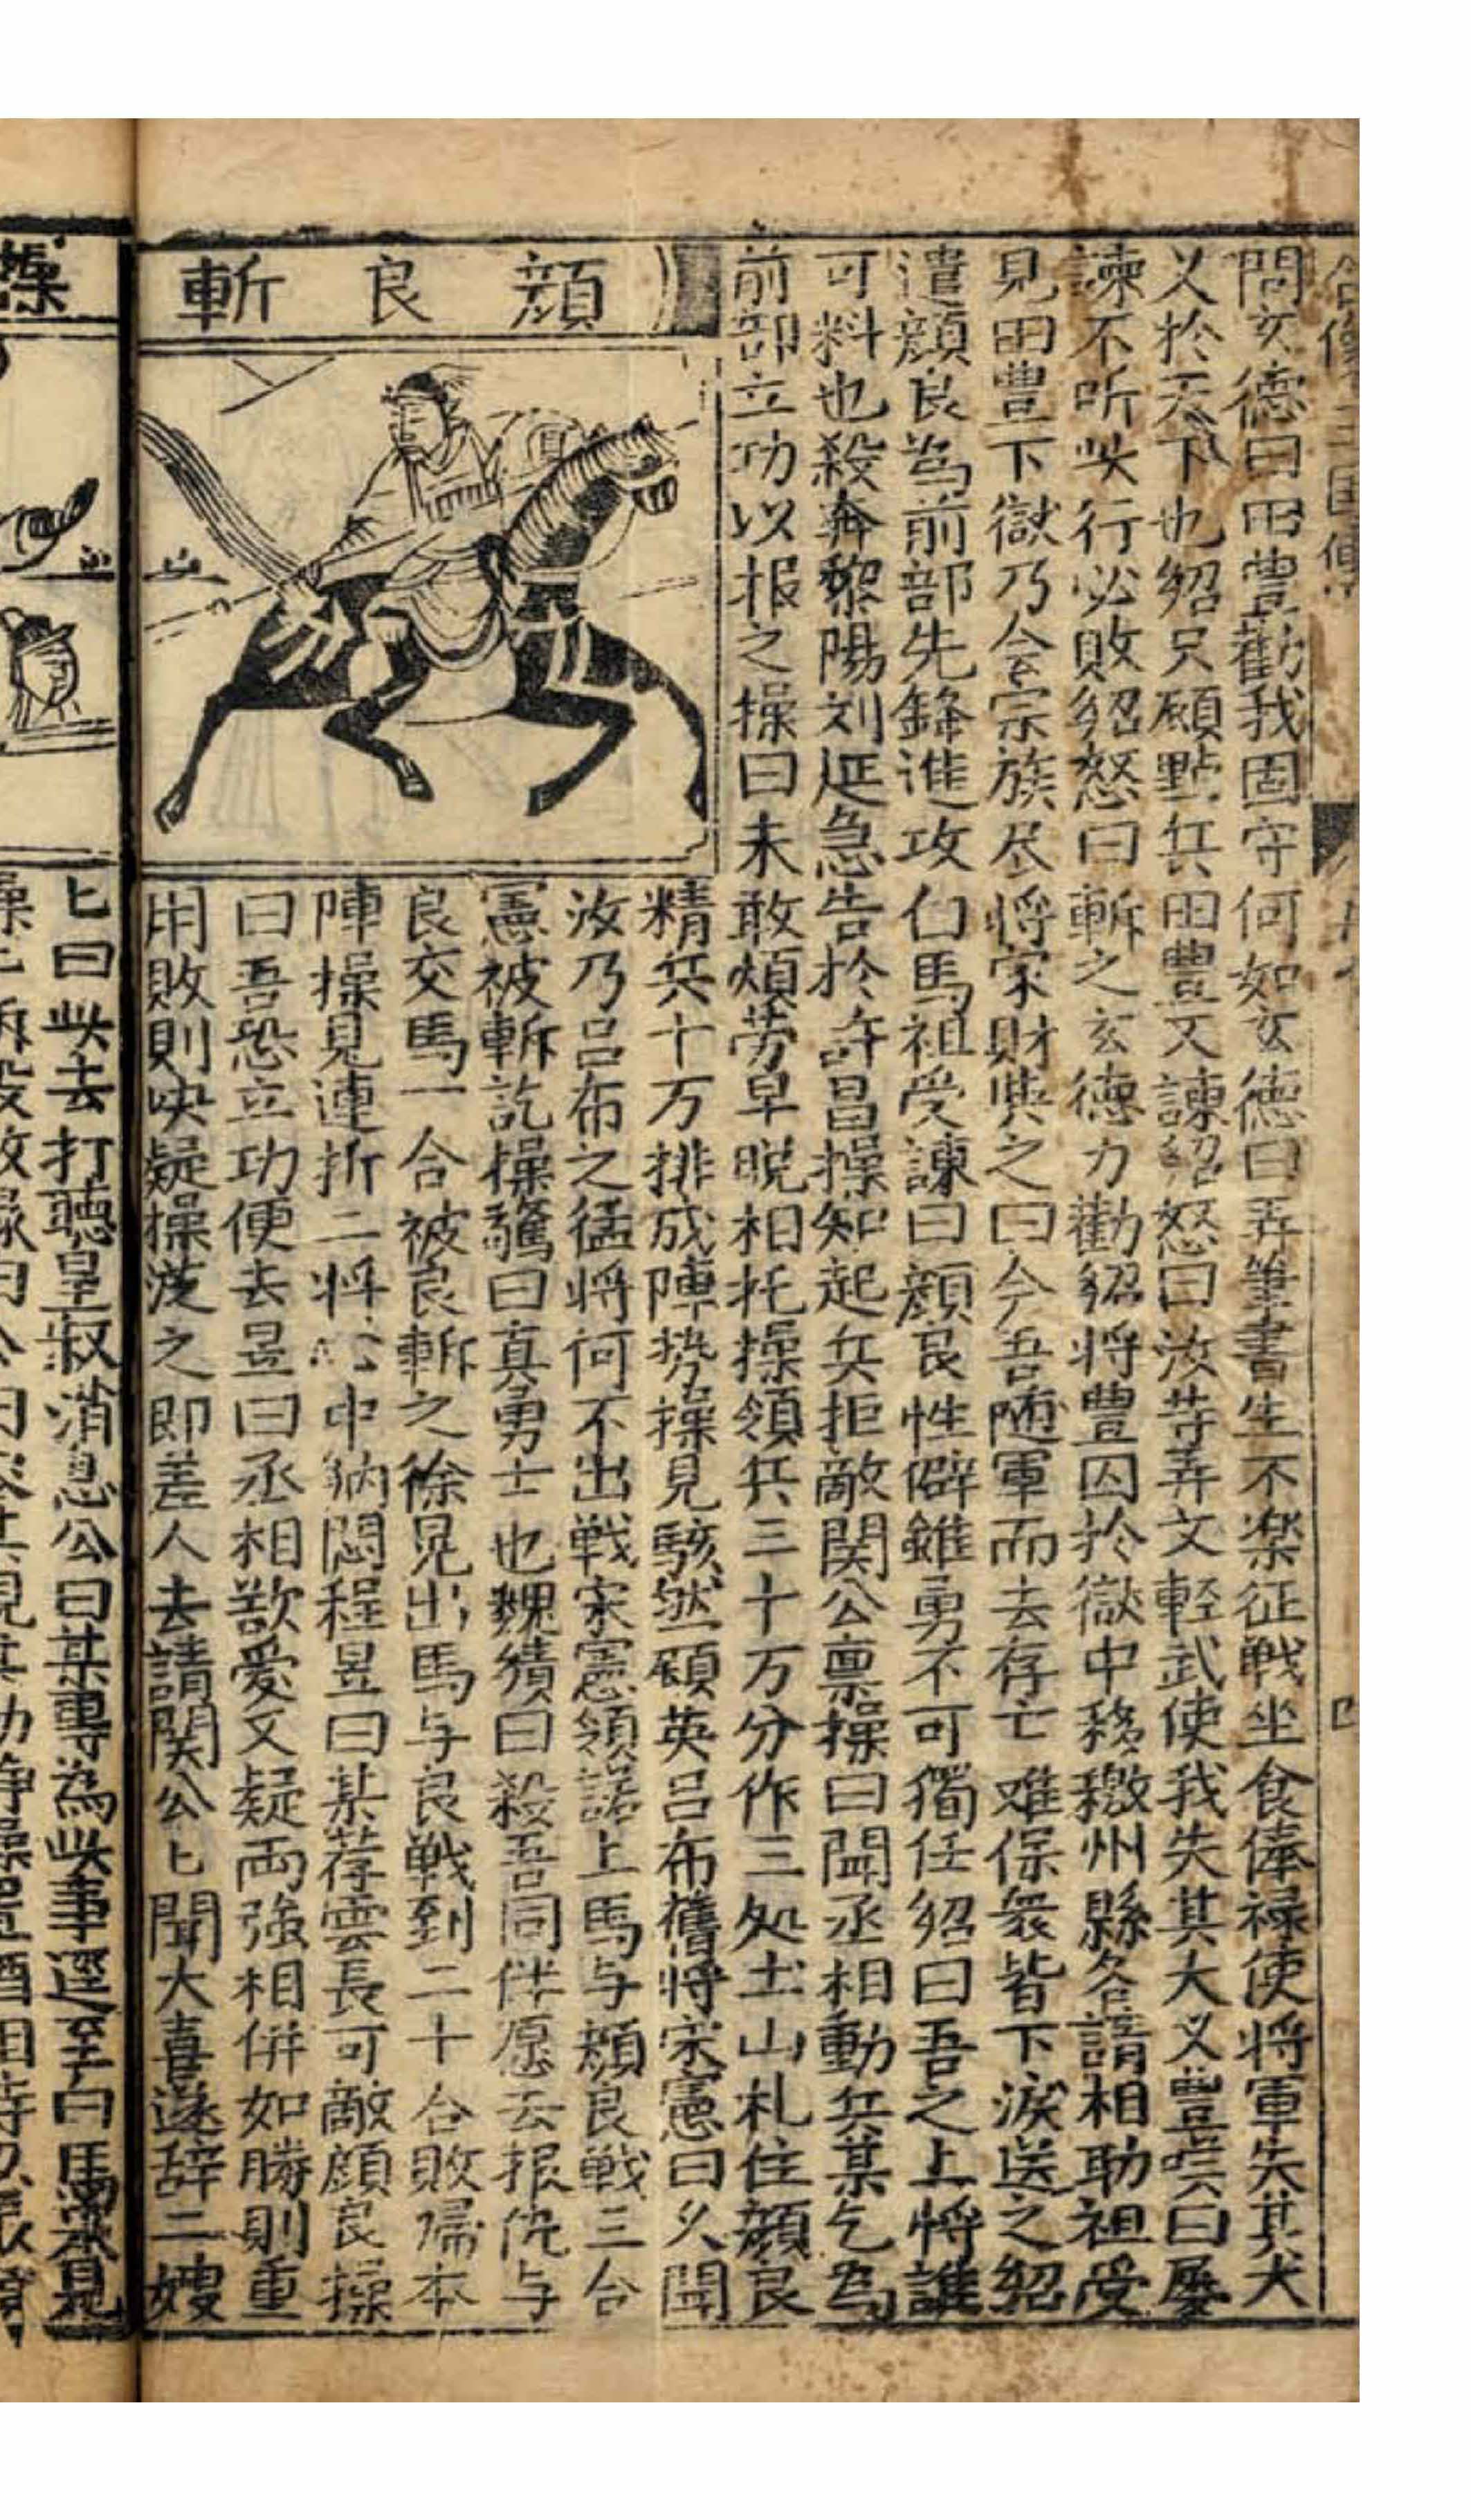 問玄德曰田豊勸我固守何如玄德曰弄筆書生不楽征戦坐食俸禄使将軍失其大
义於天下也紹只顧點兵田豊又諫紹怒曰汝等弄文軽武使我失其大义豊曰屡
諫不听此行必敗紹怒曰斬之玄德力勸紹将豊囚於獄中移檄州縣各請相助祖受
見田豊下獄乃会宗族尽将家財與之曰今吾随軍而去存亡难保衆皆下淚送之紹
遣顔良為前部先鋒進攻白馬祖受諫曰顔良性僻雖勇不可獨任紹曰吾之上将誰
可料也殺奔黎陽刘延急告於許昌操知起兵拒敵関公禀操曰聞丞相動兵某乞為
前部立功以报之操曰未敢煩劳早晚相托操領兵三十万分作三处土山札住顔良
顔良斬
精兵十万排成陣势操見駭然顧英吕布舊将宋憲曰久聞
汝乃吕布之猛将何不出戦宋憲領諾上馬与顔良戦三合
憲被斬訖操驚曰真勇士也魏續曰殺吾同伴愿去报仇与
良交馬一合被良斬之徐晃出馬与良戦到二十合敗歸本
陣操見連折二将心中納悶程昱曰某荐雲長可敵顔良操
曰吾恐立功便去昱曰丞相欲愛又疑两强相併如勝則重
用敗則决疑操從之即差人去請関公匕聞大喜遂辞二嫂
操
匕曰此去打聽皇叔消息公曰某専為此事逕至白馬來見